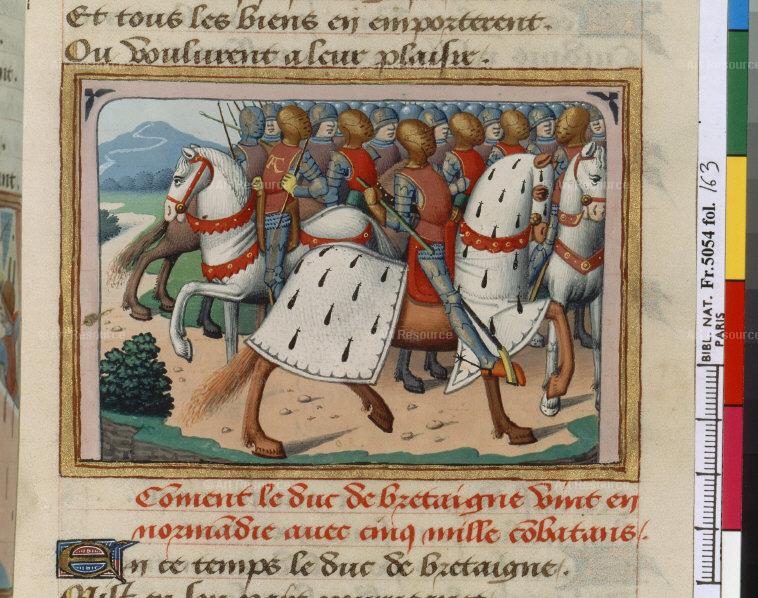 Et tous les biens en emporterent.
Ou voulurent a leur plaisir.
Coment le duc de bretaigne vint en
normãdie auec cinq mille cõbatans/.
En ce temps le duc de bretaigne/.
BIBL. NAT. Fr.5054 fol. 163
PARIS